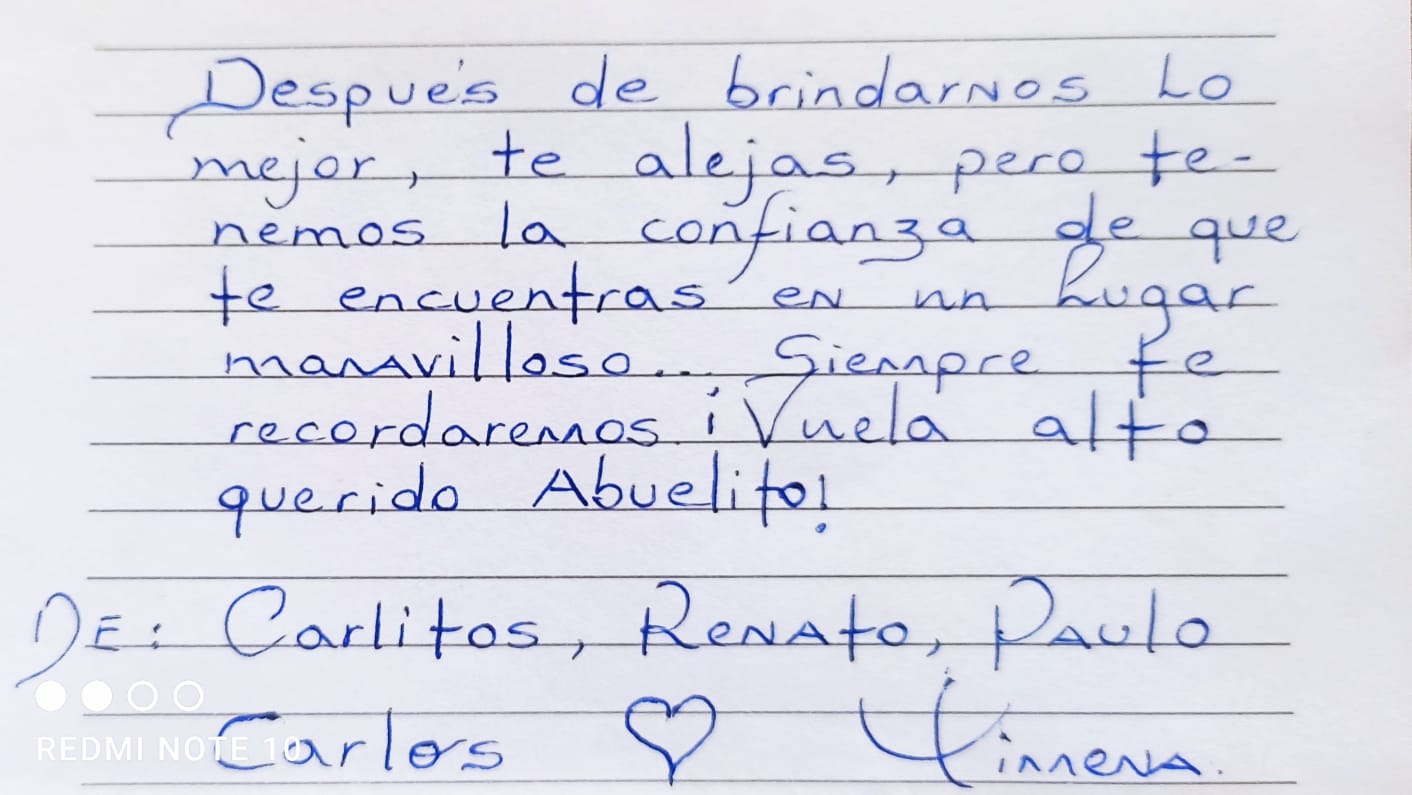 Después de brindarnos lo
mejor, te alejas, pero te-
nemos la confianza de que
te encuentras en un lugar
maravilloso... Siempre te
recordaremos. ¡Vuela alto
querido Abuelito!
DE: Carlitos, Renato, Paulo
Carlos ♡ Ximena.
REDMI NOTE 10